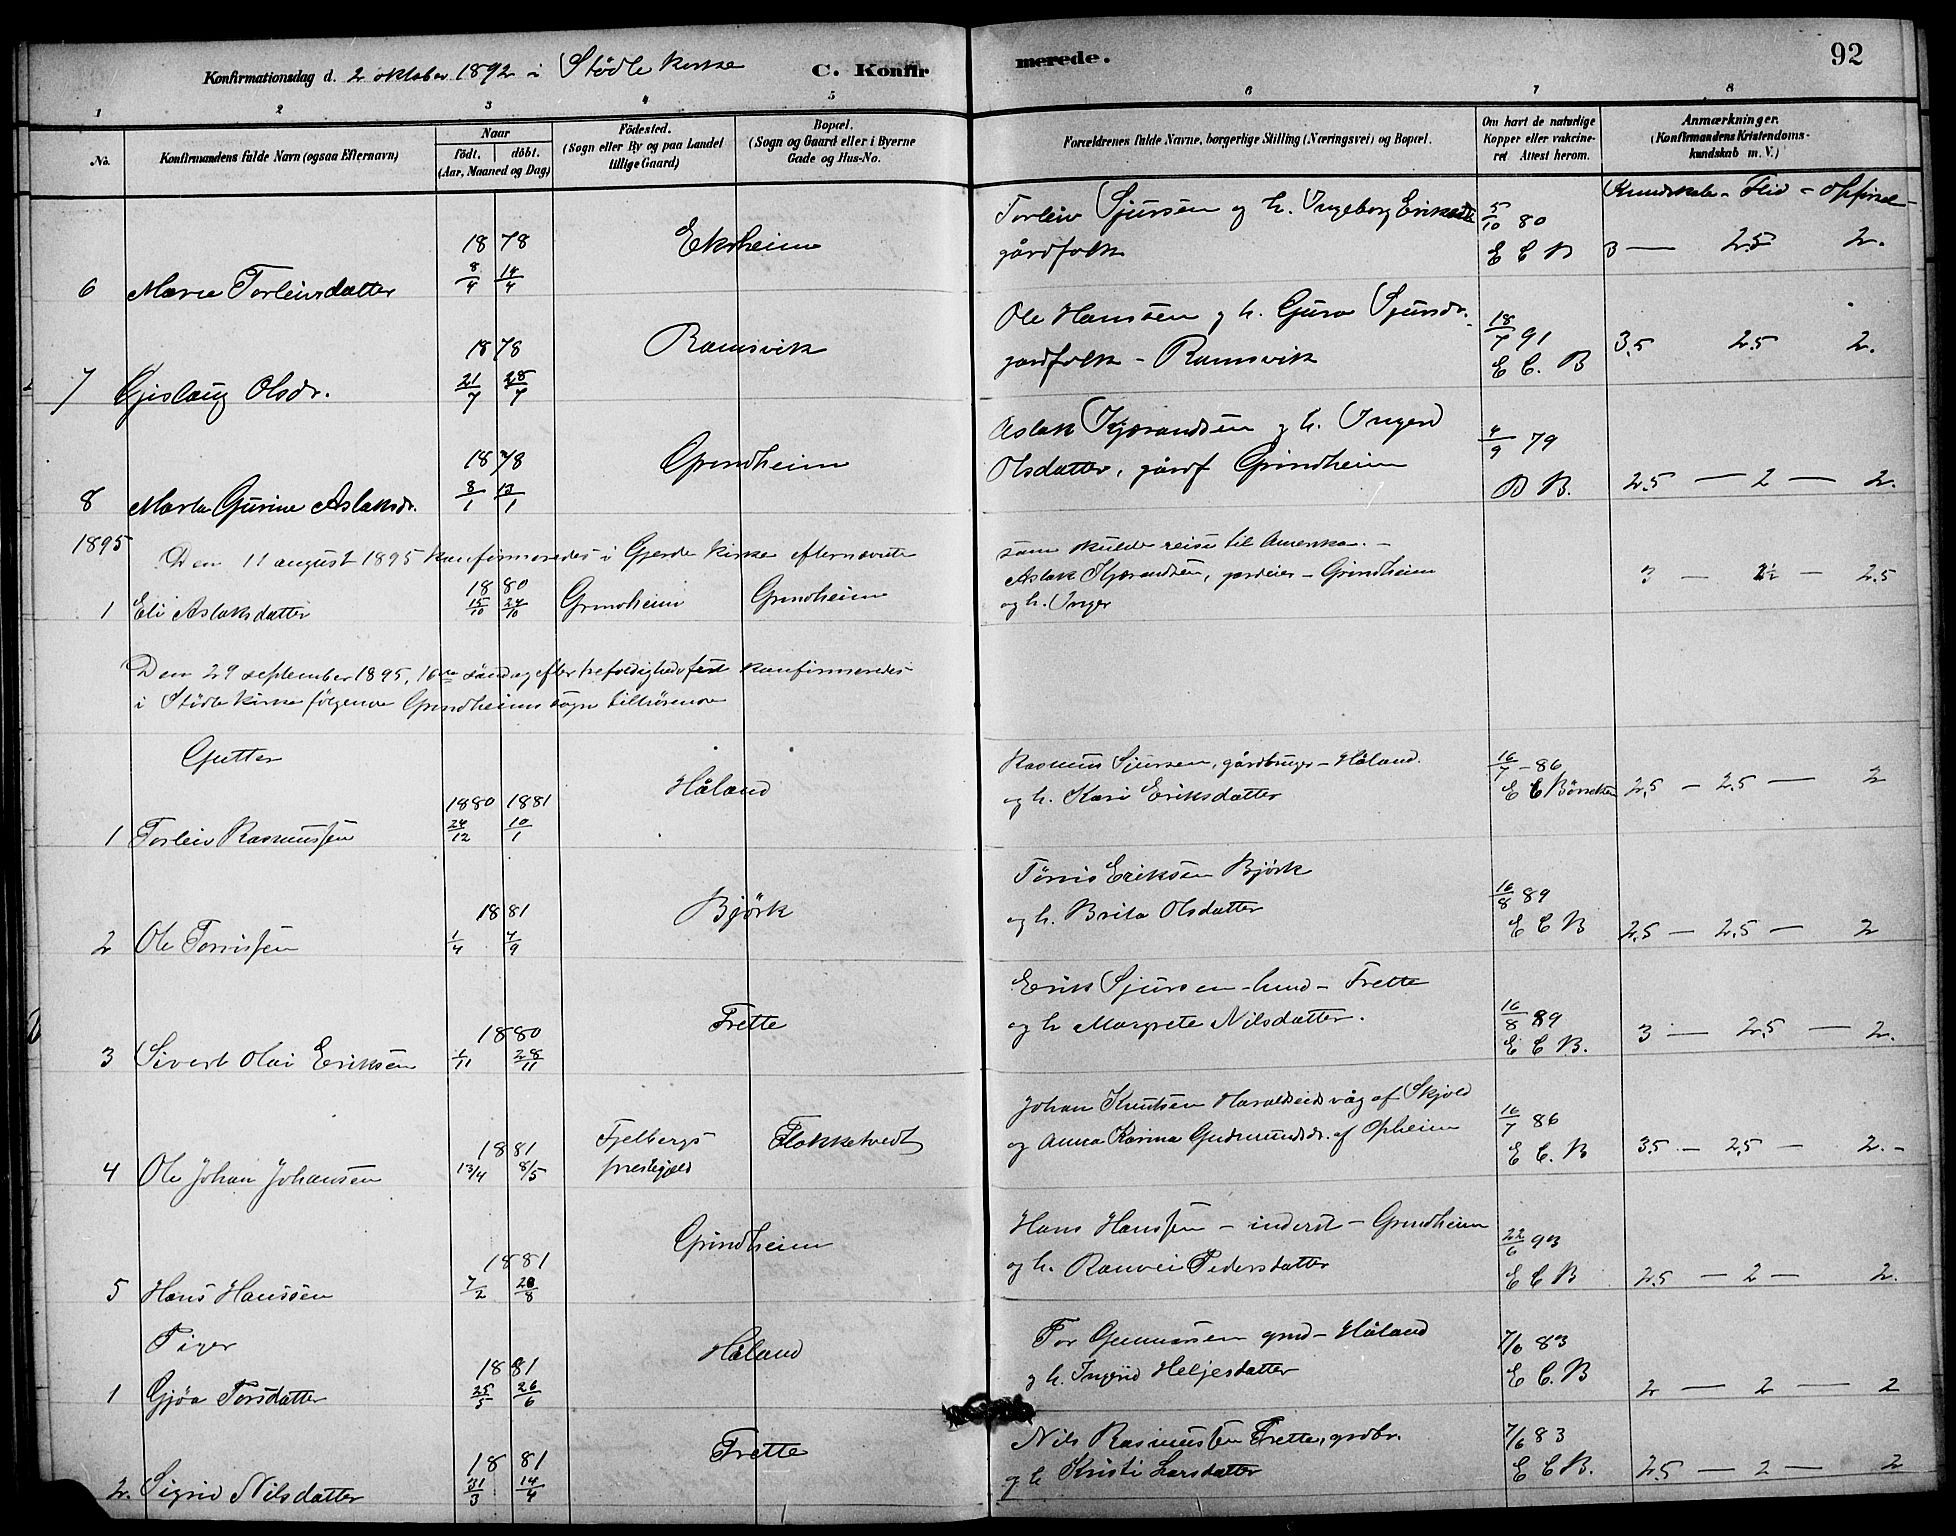 92
Konfirmationsdag d. 2 oktober 1892 i Stødle kirke C. Konfirmerede.
1 2 3 4 5 6 7 8
No. Konfirmandens fulde Navn (ogsaa Efternavn) Naar født. døbt. (Aar, Maaned og Dag) Fødested. (Sogn eller By og paa Landet tillige Gaard) Bopæl. (Sogn og Gaard eller i Byerne Gade og Hus-No. Forældrenes fulde Navne, borgerlige Stilling (Næringsvei) og Bopæl. Om havt de naturlige Kopper eller vakcineret Attest herom. Anmærkninger. (Konfirmandens Kristendomskundskab m. V.)
Kundskab - Flid - Opførsel -
6 Marie Torleivsdatter 1878 8/4 14/4 Ekrheim Torleiv Sjursen og h. Ingeborg Eriksdtr
gårdfolk 5/10 80 E C B 3 — 2.5 2.
7 Gjislaug Olsdr. 1878 21/7 28/7 Ramsvik Ole Hanssen og h. Guro Sjursdr.
gardfolk - Ramsvik 18/7 91 E C. B 3.5 2.5 2.
8 Marta Gurine Aslaksdr. 1878 8/1 13/1 Grindheim Aslak Kjærandsen og h. Ingerd
Olsdatter, gårdf Grindheim 4/9 79 B B. 2.5 — 2 — 2.
1895 Den 11 august 1895 konfirmeredes i Gjerde kirke efternævnte som skulde reise til Amerika. -
1 Eli Aslaksdatter 1880 15/10 24/10 Grindheim Grindheim Aslak Kjærandsen, gardeier - Grindheim
og h. Inger 3 — 2½ — 2.5
Den 29 september 1895, 16de søndag efter trefoldighedsfest konfirmeredes
i Stødle kirke følgende Grindheims sogn tilhørende
Gutter
1 Torleiv Rasmussen 1880 24/12 1881 10/1 Håland Rasmus Sjursen, gårdbruger - Håland.
og h. Kari Eriksdatter 16/7 - 86 E C 2.5 — 2.5 — 2
2 Ole Tørrissen 1881 1/4 4/9 Bjørk Tørris Eriksen Bjørk
og h. Brita Olsdatter 16/8 89 E C B 2.5 — 2.5 — 2
3 Sivert Olai Eriksen 1880 1/11 28/11 Frette Erik Sjursen - husm - Frette
og h Margrete Nilsdatter. 16/8 89 E C B. 3 — 2.5 — 2.
4 Ole Johan Johansen 1881 13/4 8/5 Fjelbergs
prestegjeld Flokketvedt Johan Knutsen Haraldseidsvåg af Skjold
og Anna Karina Gudmundsdr. af Opheim 16/7 86 E C. B 3.5 — 2.5 — 2. -
5 Hans Hanssen 1881 7/2 28/8 Grindheim Hans Hanssen - inderst - Grindheim
og h. Ranvei Pedersdatter 22/6 93 E C B 2.5 — 2 — 2.
Piger
1 Gjøa Torsdatter 1881 25/5 26/6 Håland Tor Gunnarsen grd - Håland
og h. Ingrid Heljesdatter 7/6 83 E C. B 2 — 2 — 2
2. Sigrid Nilsdatter 1881 31/3 14/4 Frette Nils Rasmussen Frette, grdbr.
og h Kristi Larsdatter 7/6 83 E C B. 2.5 — 2 — 2